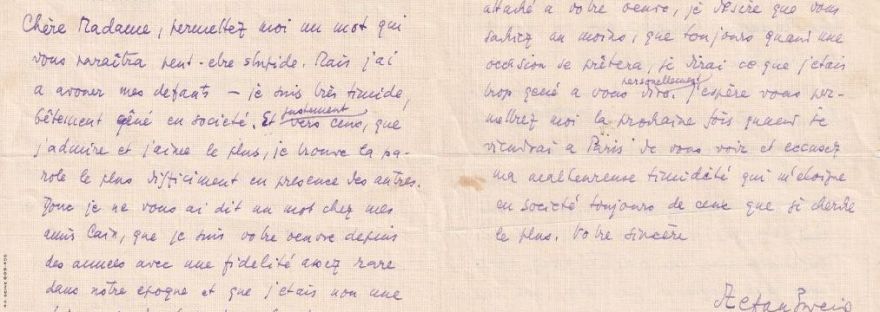 Chère Madame, permettez moi un mot qui
vous paraîtra peut-etre stupide. Mais j'ai
a avouer mes defauts — je suis très timide,
bêtement gêné en société. Et justement vers ceux, que
j'admire et j'aime le plus, je trouve la pa-
role le plus difficiment en presence des autres.
Donc je ne vous ai dit un mot chez mes
amis Cain, que je suis votre oeuvre depuis
des années avec une fidelité assez rare
dans notre epoque et que j'etais non une
attaché a votre oeuvre, je désire que vous
sachiez au moins, que toujours quand une
occasion se prêtera, je dirai ce que j'etais
trop gené a vous dire personellement. j'espère vous per-
mettrez moi la prochaine fois quand je
viendrai a Paris de vous voir et excusez
ma malheureuse timidité qui m'eloigne
en société toujours de ceux que je cherche
le plus. Votre sincère
Stefan Zweig